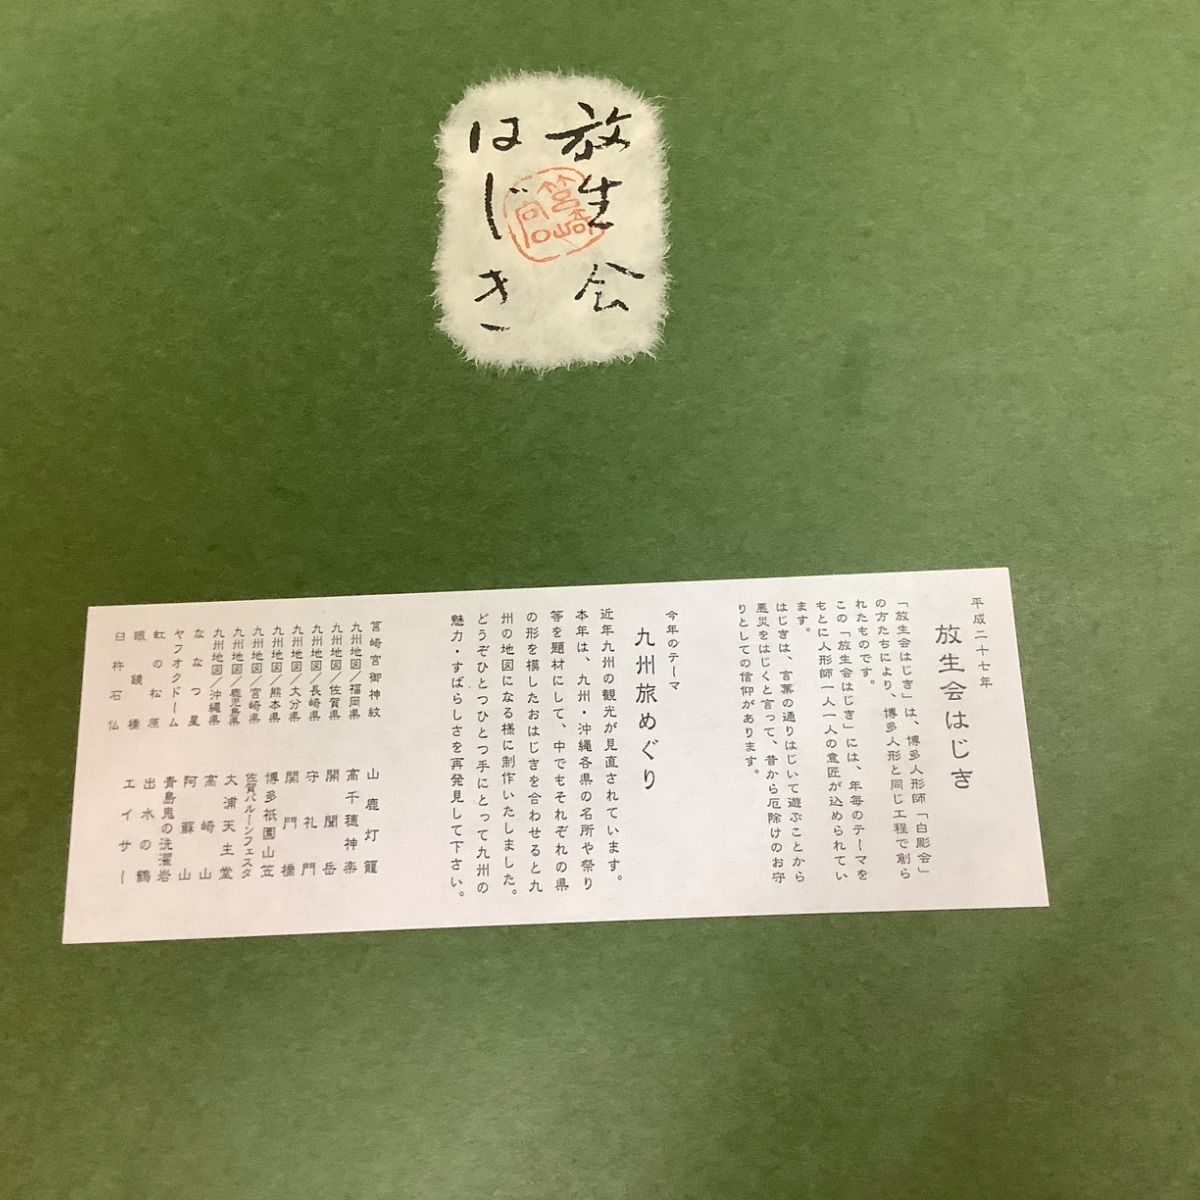 放生会
はじき
筥崎
宮
平成二十七年
放生会はじき
「放生会はじき」は、博多人形師「白彫会」
の方たちにより、博多人形と同じ工程で創ら
れたものです。
この「放生会はじき」には、年毎のテーマを
もとに人形師一人一人の意匠が込められてい
ます。
はじきは、言葉の通りはじいて遊ぶことから
悪災をはじくと言って、昔から厄除けのお守
りとしての信仰があります。
今年のテーマ
九州旅めぐり
近年九州の観光が見直されています。
本年は、九州・沖縄各県の名所や祭り
等を題材にして、中でもそれぞれの県
の形を模したおはじきを合わせると九
州の地図になる様に制作いたしました。
どうぞひとつひとつ手にとって九州の
魅力・すばらしさを再発見して下さい。
筥崎宮御神紋
九州地図/福岡県
九州地図/佐賀県
九州地図/長崎県
九州地図/大分県
九州地図/熊本県
九州地図/宮崎県
九州地図/鹿児島県
九州地図/沖縄県
ななつ星
ヤフオクドーム
虹の松原
眼鏡橋
臼杵石仏
山鹿灯籠
高千穂神楽
開聞岳
守礼門
関門橋
博多祇園山笠
佐賀バルーンフェスタ
大浦天主堂
高崎山
阿蘇山
青島鬼の洗濯岩
出水の鶴
エイサー